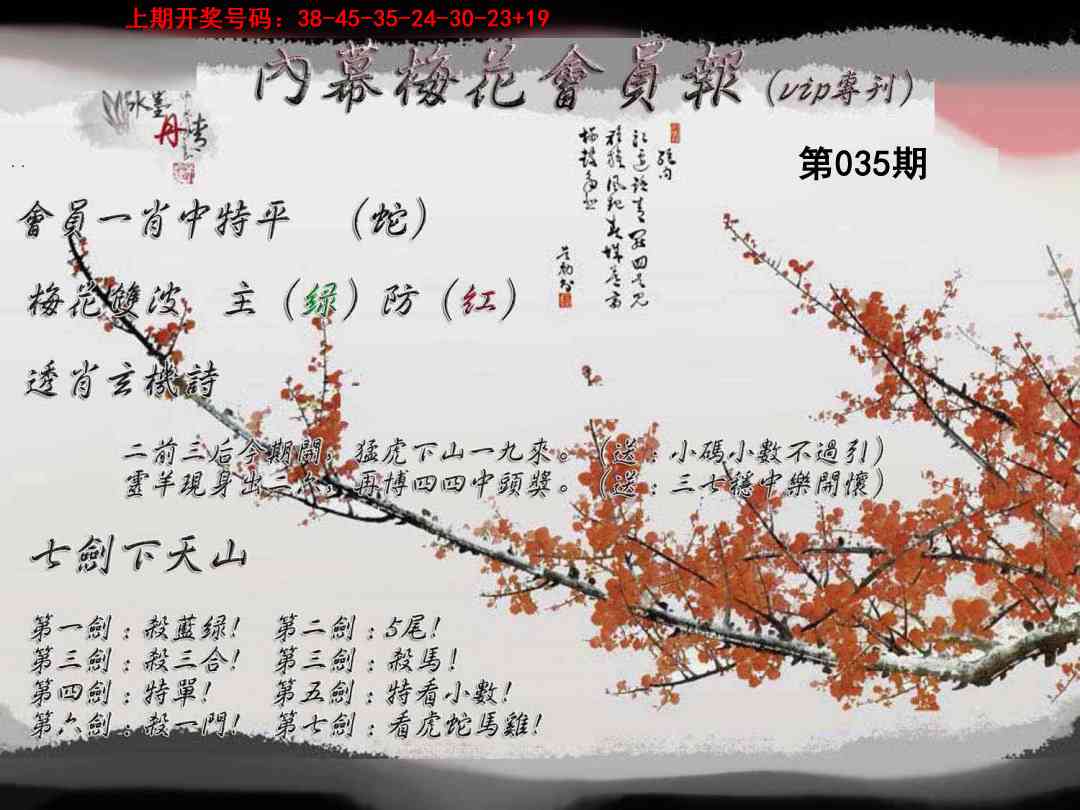 上期开奖号码：38-45-35-24-30-23+19
內幕梅花會員報（vip專刊）
水墨丹青
第035期
會員一肖中特平　（蛇）
梅花雙波　主（绿）防（红）
透肖玄機詩
二前三后今期開，猛虎下山一九來。（送：小碼小數不過引）
靈羊現身出二次，再博四四中頭獎。（送：三七穩中樂開懷）
七劍下天山
第一劍：殺藍绿！　第二劍：5尾！
第三劍：殺三合！　第三劍：殺馬！
第四劍：特單！　第五劍：特看小數！
第六劍：殺一門！　第七劍：看虎蛇馬雞！